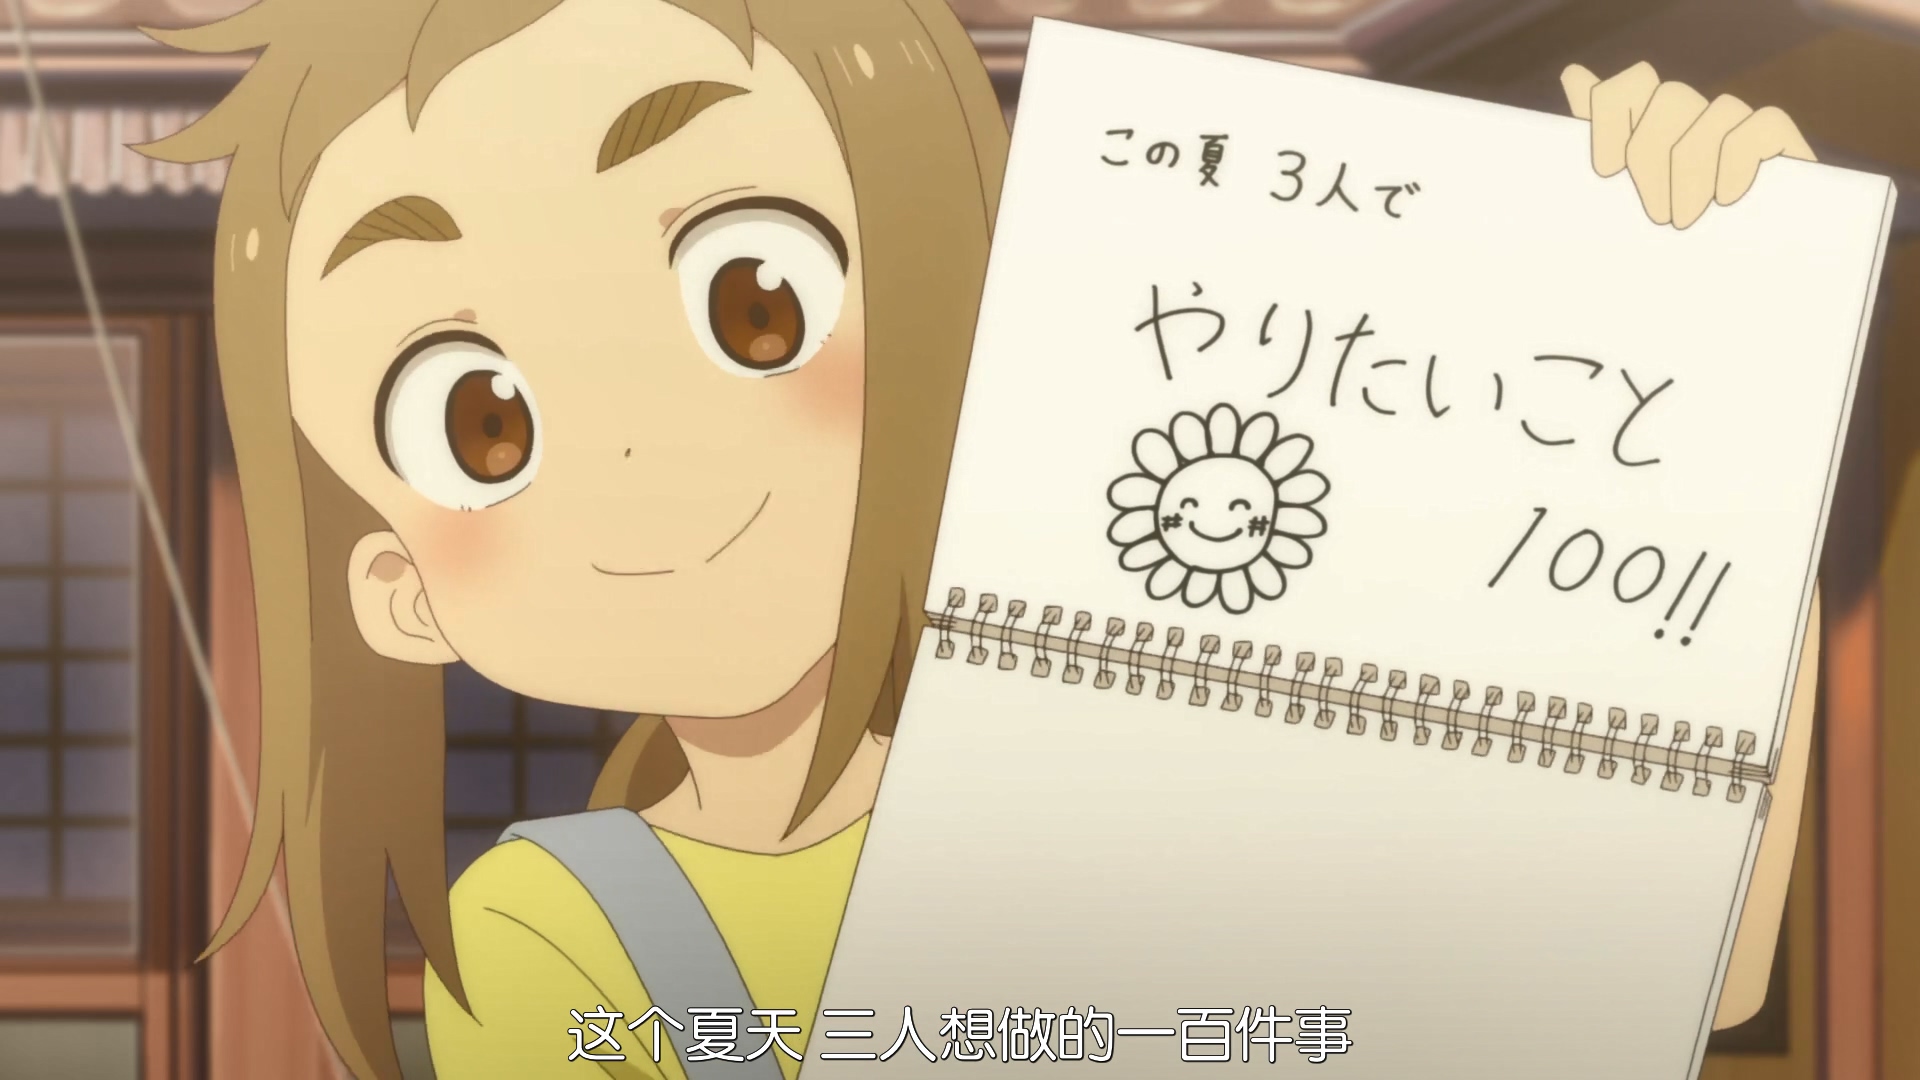 この夏 3人で
やりたいこと
100!!
这个夏天 三人想做的一百件事